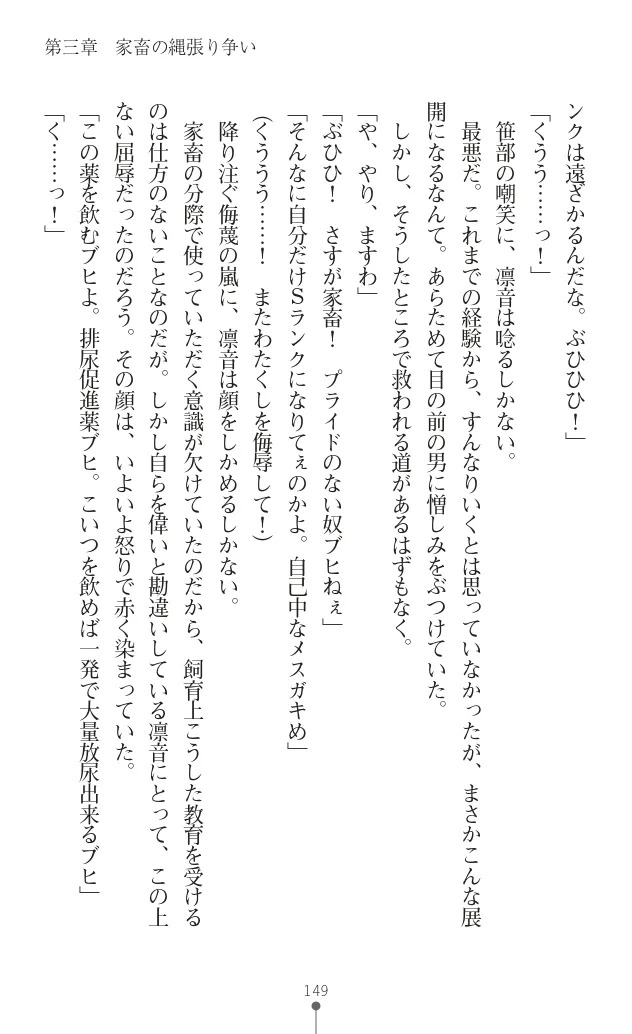 第三章　家畜の縄張り争い
ンクは遠ざかるんだな。ぶひひひ！」
「くうう……っ！」
　笹部の嘲笑に、凛音は唸るしかない。
　最悪だ。これまでの経験から、すんなりいくとは思っていなかったが、まさかこんな展
開になるなんて。あらためて目の前の男に憎しみをぶつけていた。
　しかし、そうしたところで救われる道があるはずもなく。
「や、やり、ますわ」
「ぶひひ！　さすが家畜！　プライドのない奴ブヒねぇ」
「そんなに自分だけＳランクになりてぇのかよ。自己中なメスガキめ」
（くううう………！　またわたくしを侮辱して！）
　降り注ぐ侮蔑の嵐に、凛音は顔をしかめるしかない。
　家畜の分際で使っていただく意識が欠けていたのだから、飼育上こうした教育を受ける
のは仕方のないことなのだが。しかし自らを偉いと勘違いしている凛音にとって、この上
ない屈辱だったのだろう。その顔は、いよいよ怒りで赤く染まっていた。
「この薬を飲むブヒよ。排尿促進薬ブヒ。こいつを飲めば一発で大量放尿出来るブヒ」
「く……っ！」
149